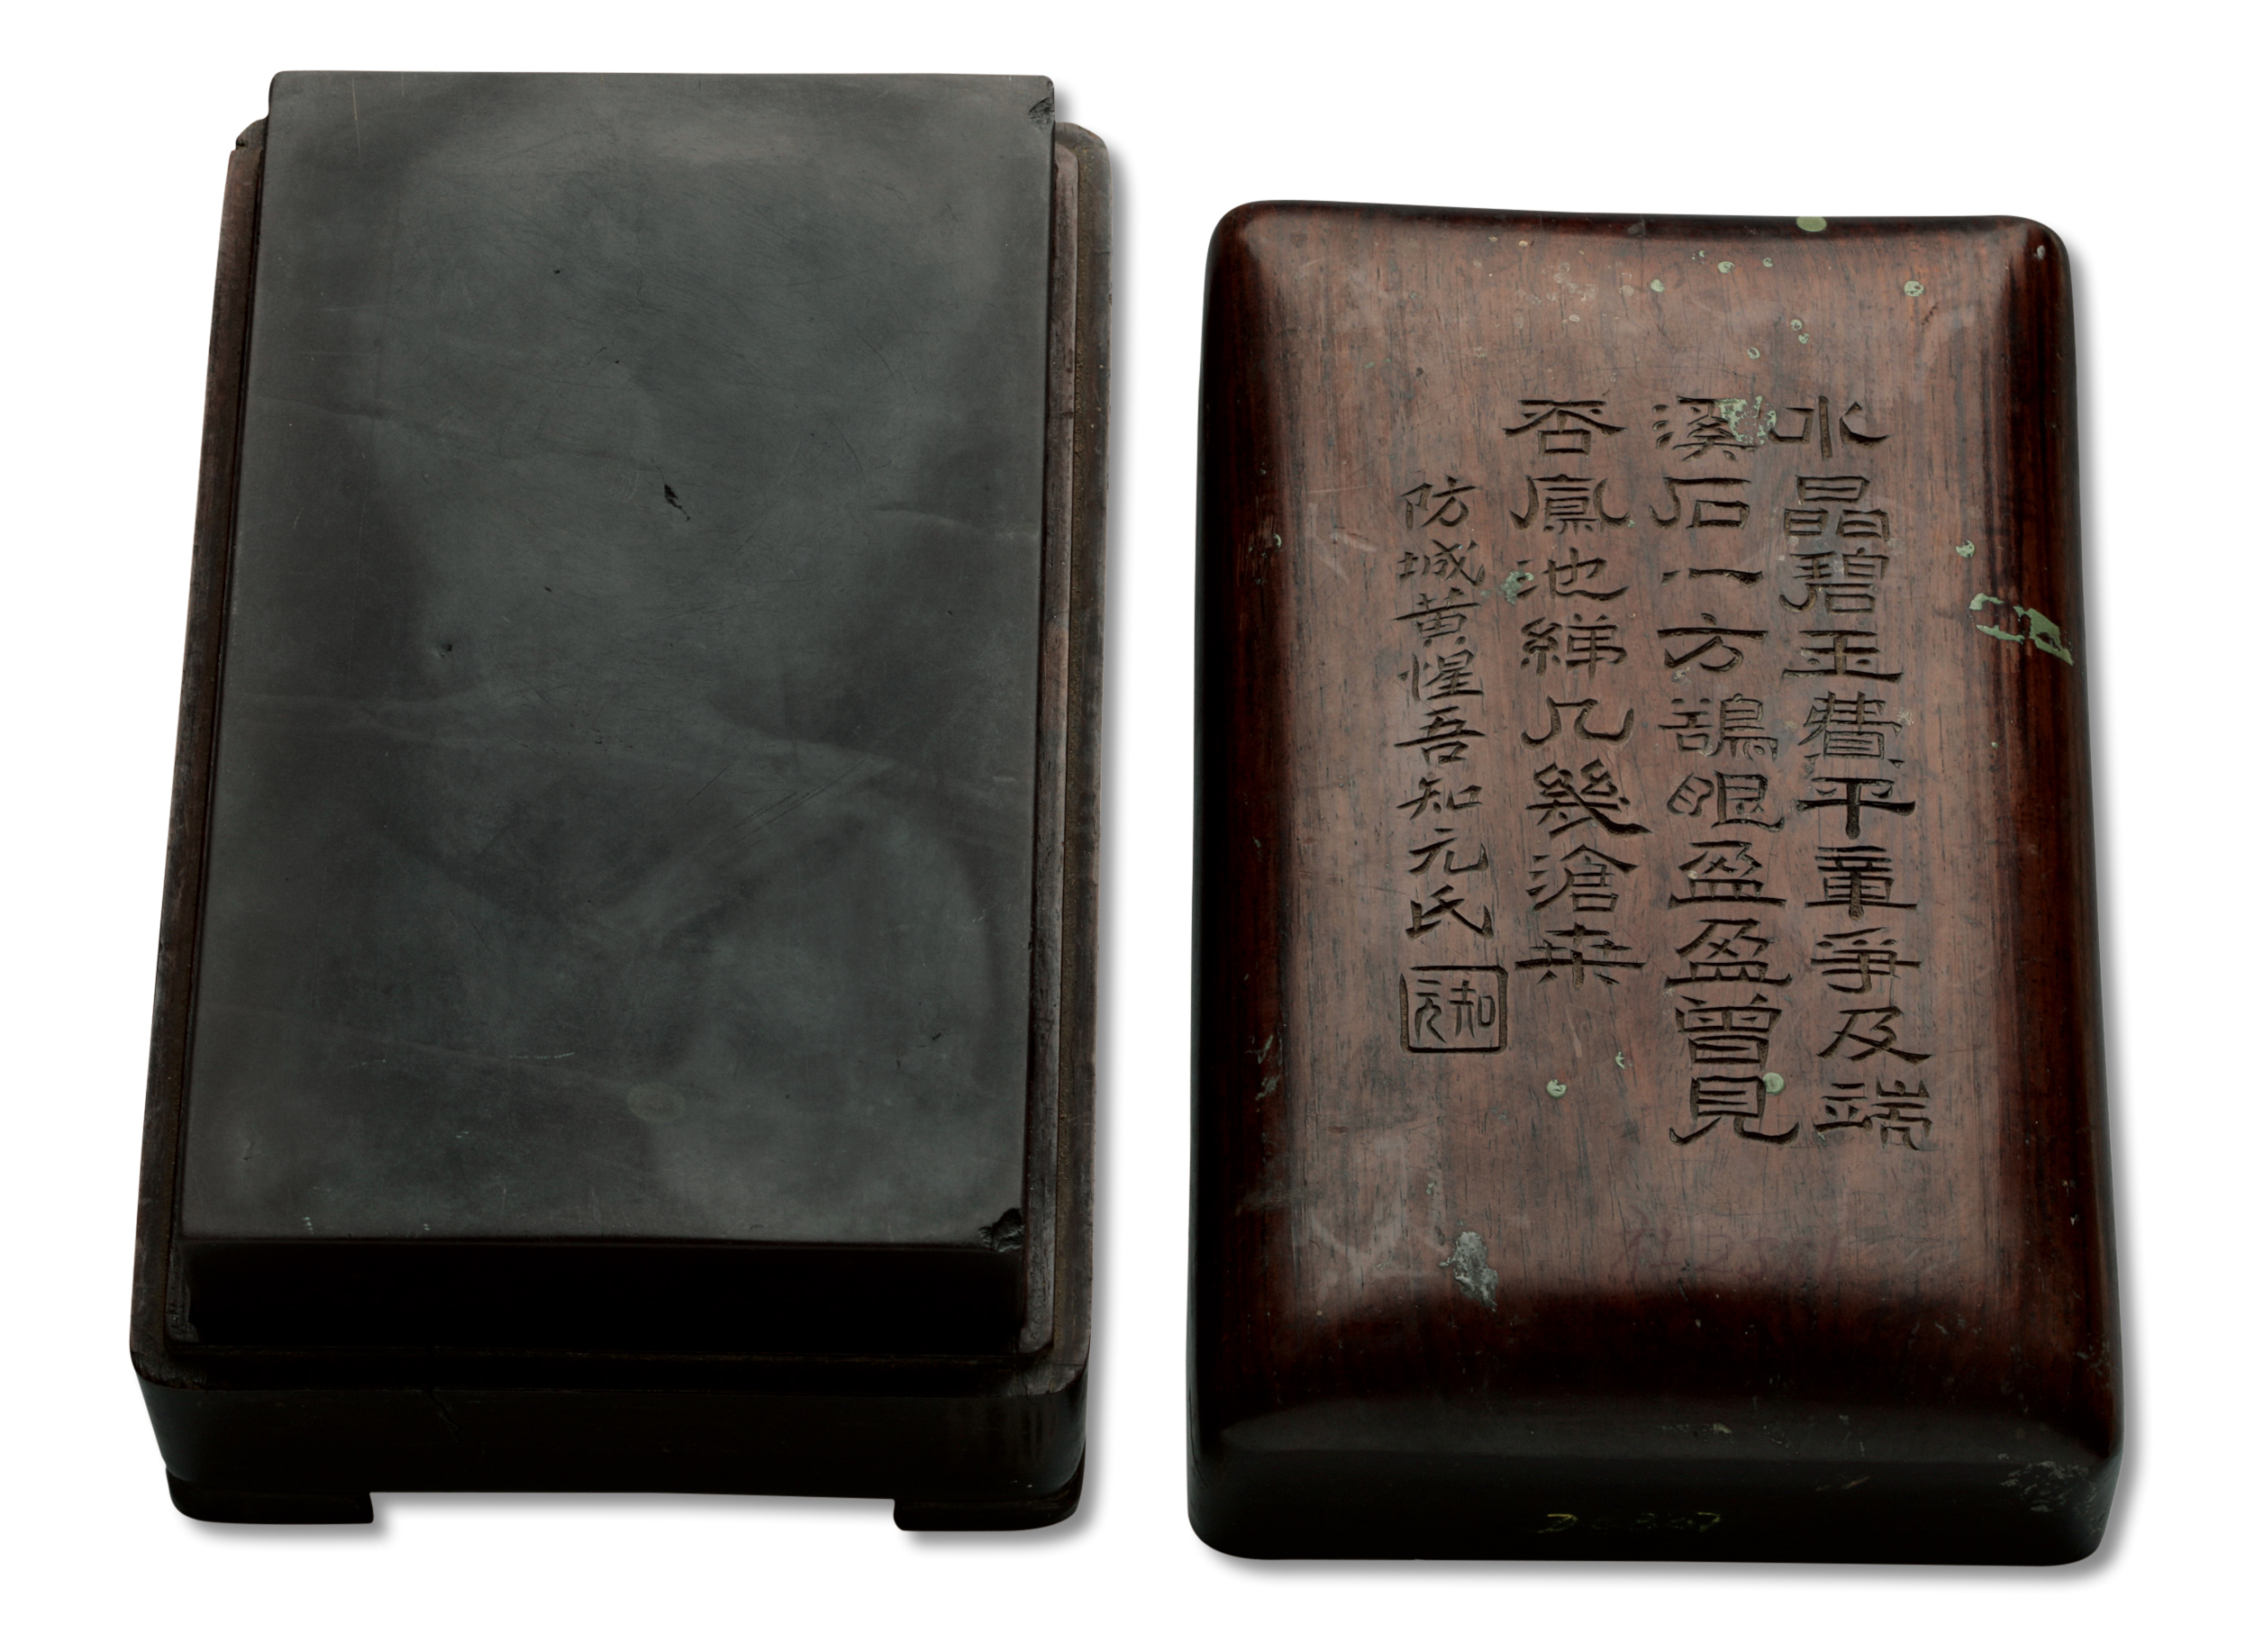 水晶碧玉費平章爭及端
溪石一方鵠眼盈盈曾見
否鳳池綈几幾滄桒
防城黃惺吾知元氏
知元